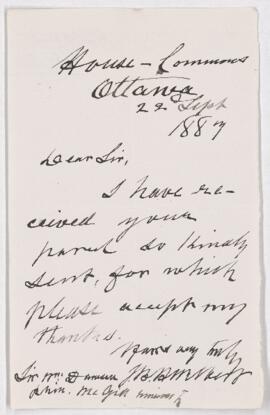 House - Commons
Ottawa
22 Sept
1887
Dear Sir,
I have re-
ceived your
parcel so kindly
sent, for which
please accept my
thanks.
Yours very truly
Sir Wm. Dawson
McGill